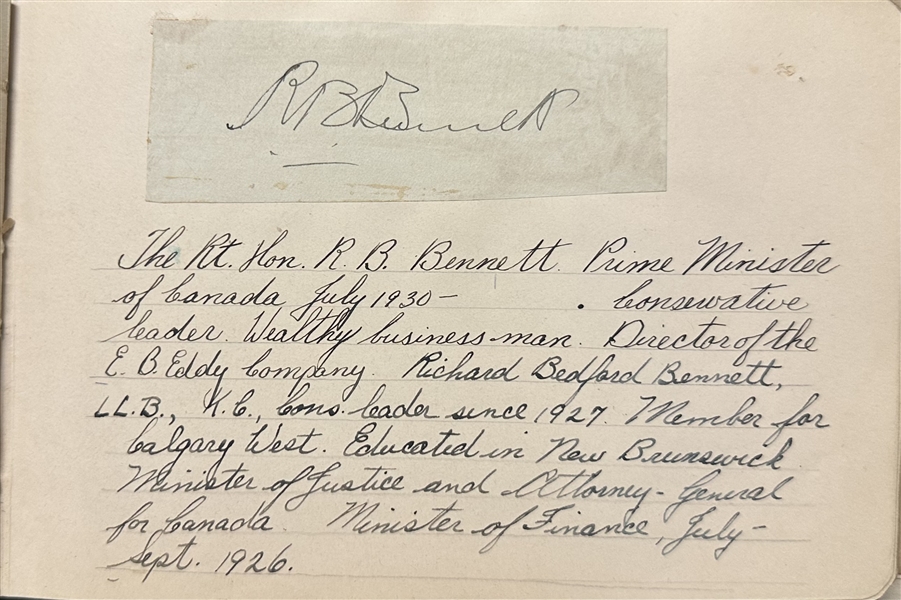 R B Bennett
The Rt. Hon. R. B. Bennett. Prime Minister
of Canada July 1930 - . Conservative
leader. Wealthy business man. Director of the
E. B. Eddy Company. Richard Bedford Bennett,
LL.B., K.C., Cons. leader since 1927. Member for
Calgary West. Educated in New Brunswick.
Minister of Justice and Attorney-General
for Canada. Minister of Finance, July-
Sept. 1926.